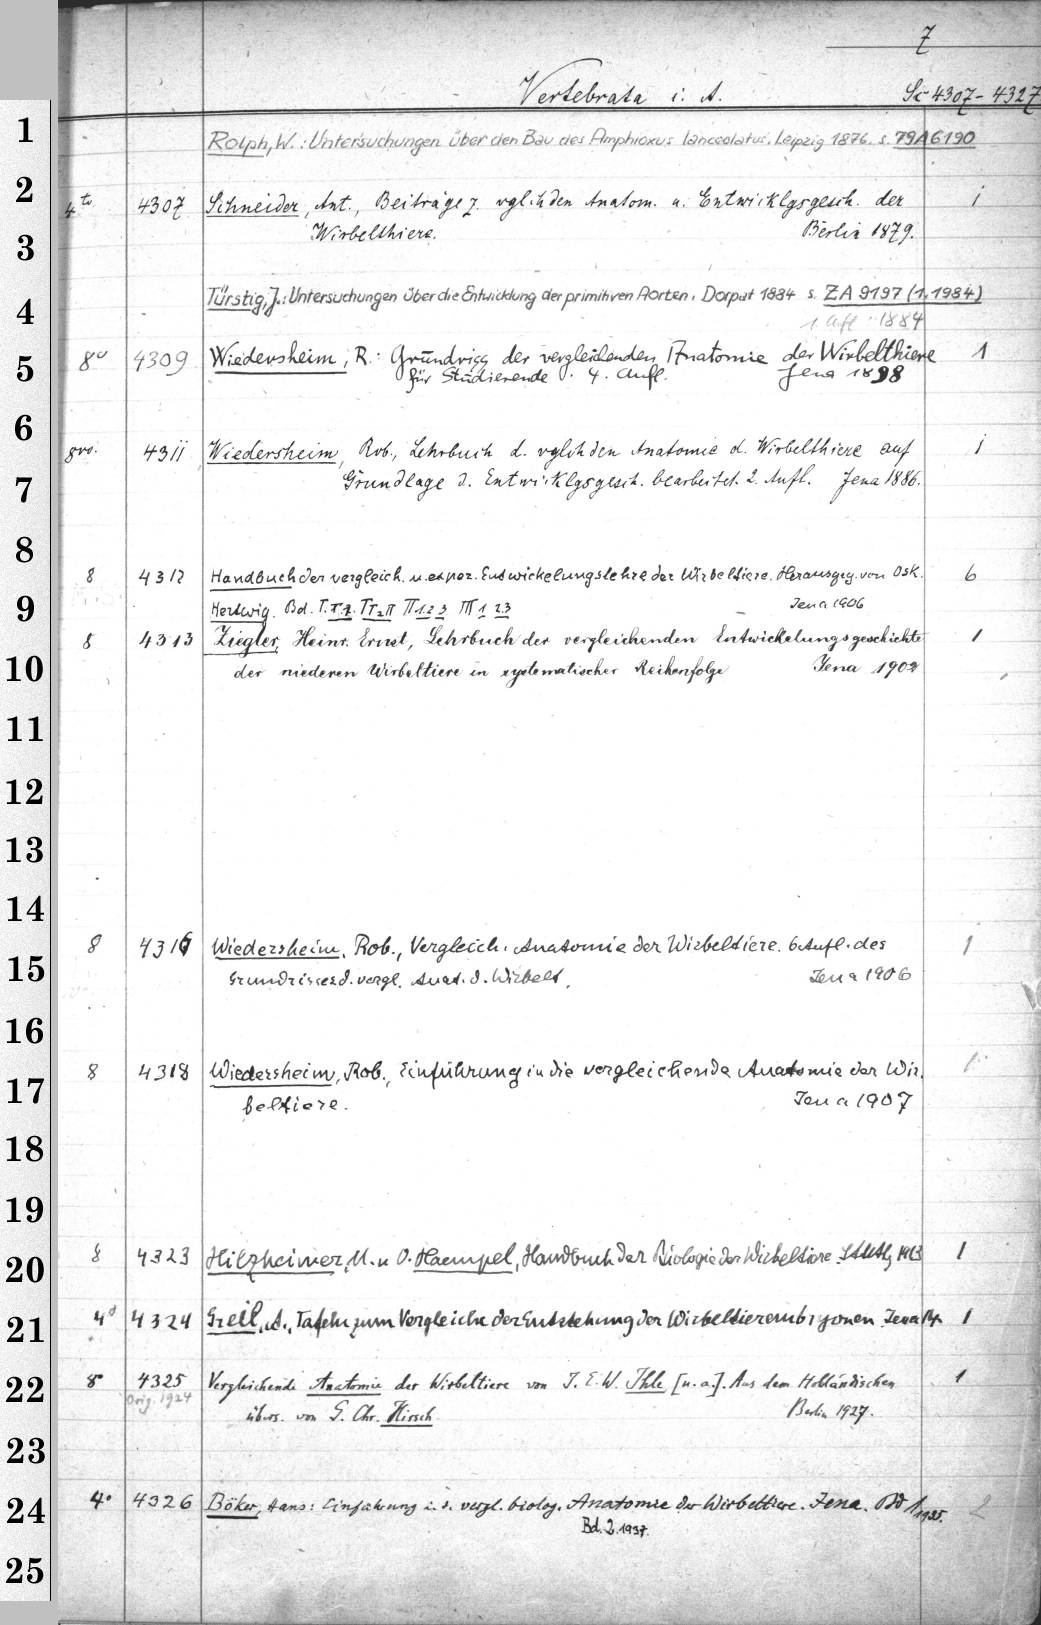 7
Vertebrata i. A. Sc 4307-4327
1
Rolph, W.: Untersuchungen über den Bau des Amphioxus lanceolatus. Leipzig 1876. s. 79A6190
2
4to 4307 Schneider, Ant., Beiträge z. vglchden Anatom. u. Entwicklgsgesch. der 1
3
Wirbelthiere. Berlin 1879.
4
Türstig, J.: Untersuchungen über die Entwicklung der primitiven Aorten. Dorpat 1884 s. ZA 9197 (1.1984)
1. Aufl. 1884
5
8° 4309 Wiedersheim, R.: Grundriss der vergleichenden Anatomie der Wirbelthiere 1
für Studierende. 4. Aufl. Jena 1898
6
8vo. 4311 Wiedersheim, Rob., Lehrbuch d. vglchden Anatomie d. Wirbelthiere auf 1
7
Grundlage d. Entwicklgsgesch. bearbeitet. 2. Aufl. Jena 1886.
8
8 4312 Handbuch der vergleich. u. exper. Entwickelungslehre der Wirbeltiere. Herausgeg. von Osk. 6
9
Hertwig. Bd. I. I.2. II2II II 1.2 3 III 1 2.3 Jena 1906
8 4313 Ziegler, Heinr. Ernst, Lehrbuch der vergleichenden Entwickelungsgeschichte 1
10
der niederen Wirbeltiere in systematischer Reihenfolge Jena 1902
11
12
13
14
8 4316 Wiedersheim, Rob., Vergleich. Anatomie der Wirbeltiere. 6 Aufl. des 1
15
Grundrisses d. vergl. Anat. d. Wirbelt. Jena 1906
16
8 4318 Wiedersheim, Rob., Einführung in die vergleichende Anatomie der Wir- 1
17
beltiere. Jena 1907
18
19
8 4323 Hilzheimer, M. u O. Haempel, Handbuch der Biologie der Wirbeltiere. Stuttg 1913 1
20
4° 4324 Greil, A., Tafeln zum Vergleiche der Entstehung der Wirbeltierembryonen. Jena 14. 1
21
8° 4325 Vergleichende Anatomie der Wirbeltiere von J. E. W. Ihle [u. a.]. Aus dem Holländischen 1
22
Orig. 1924
übers. von G. Chr. Hirsch. Berlin 1927.
23
4° 4326 Böker, Hans: Einführung i. d. vergl. biolog. Anatomie der Wirbeltiere. Jena. Bd 1 1935. 2
24
Bd. 2. 1937.
25